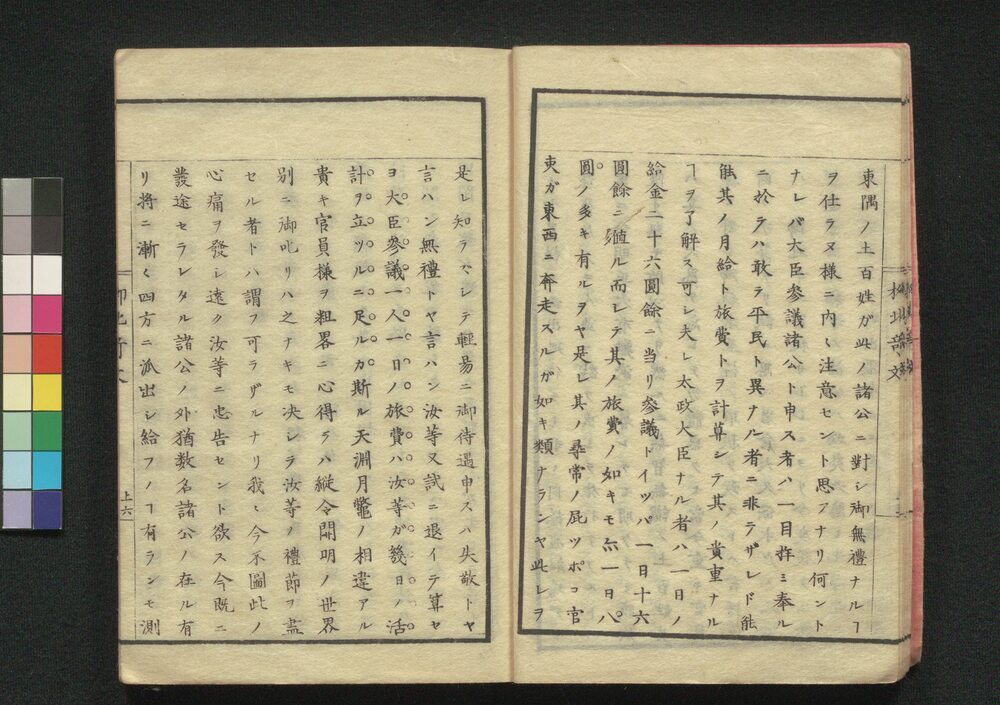 東隅ノ土百姓ガ此ノ諸公ニ對シ御無禮ナルヿ
ヲ仕ラヌ樣ニ内〻注意セント思フナリ何ント
ナレバ大臣參議諸公ト申ス者ハ一目拜ミ奉ル
ニ於テハ敢テ平民ト異ナル者ニ非ラザレド能
能其ノ月給ト旅費トヲ計算シテ其ノ貴重ナル
ヿヲ了解ス可シ夫レ太政大臣ナル者ハ一日ノ
給金二十六圓餘ニ当リ參議トイヘバ一日十六
圓餘ニ値ル而シテ其ノ旅費ノ如キモ亦一日八
圓ノ多キ有ルヲヤ是レ其ノ尋常ノ屁ッポコ官
吏ガ東西ニ奔走スルガ如キ類ナランヤ此レヲ
是レ知ラズシテ輕易ニ御待遇申スハ失敬トヤ
言ハン無禮トヤ言ハン汝等又試ニ退イテ算セ
ヨ大臣參議一人一日ノ旅費ハ汝等ガ幾日ノ活
計ヲ立ツルニ足ルカ斯ル天淵月鼈ノ相違アル
貴キ官員樣ヲ粗畧ニ心得テハ縱令開明ノ世界
別ニ御叱リハ之ナキモ决シテ汝等ノ禮節ヲ盡
セル者トハ謂フ可ラザルナリ我〻今不圖此ノ
心痛ヲ發シ遠ク汝等ニ忠告セント欲ス今既ニ
發途セラレタル諸公ノ外猶数名諸公ノ在ル有
リ將ニ漸ク四方ニ派出シ給フノヿ有ランモ測
上六